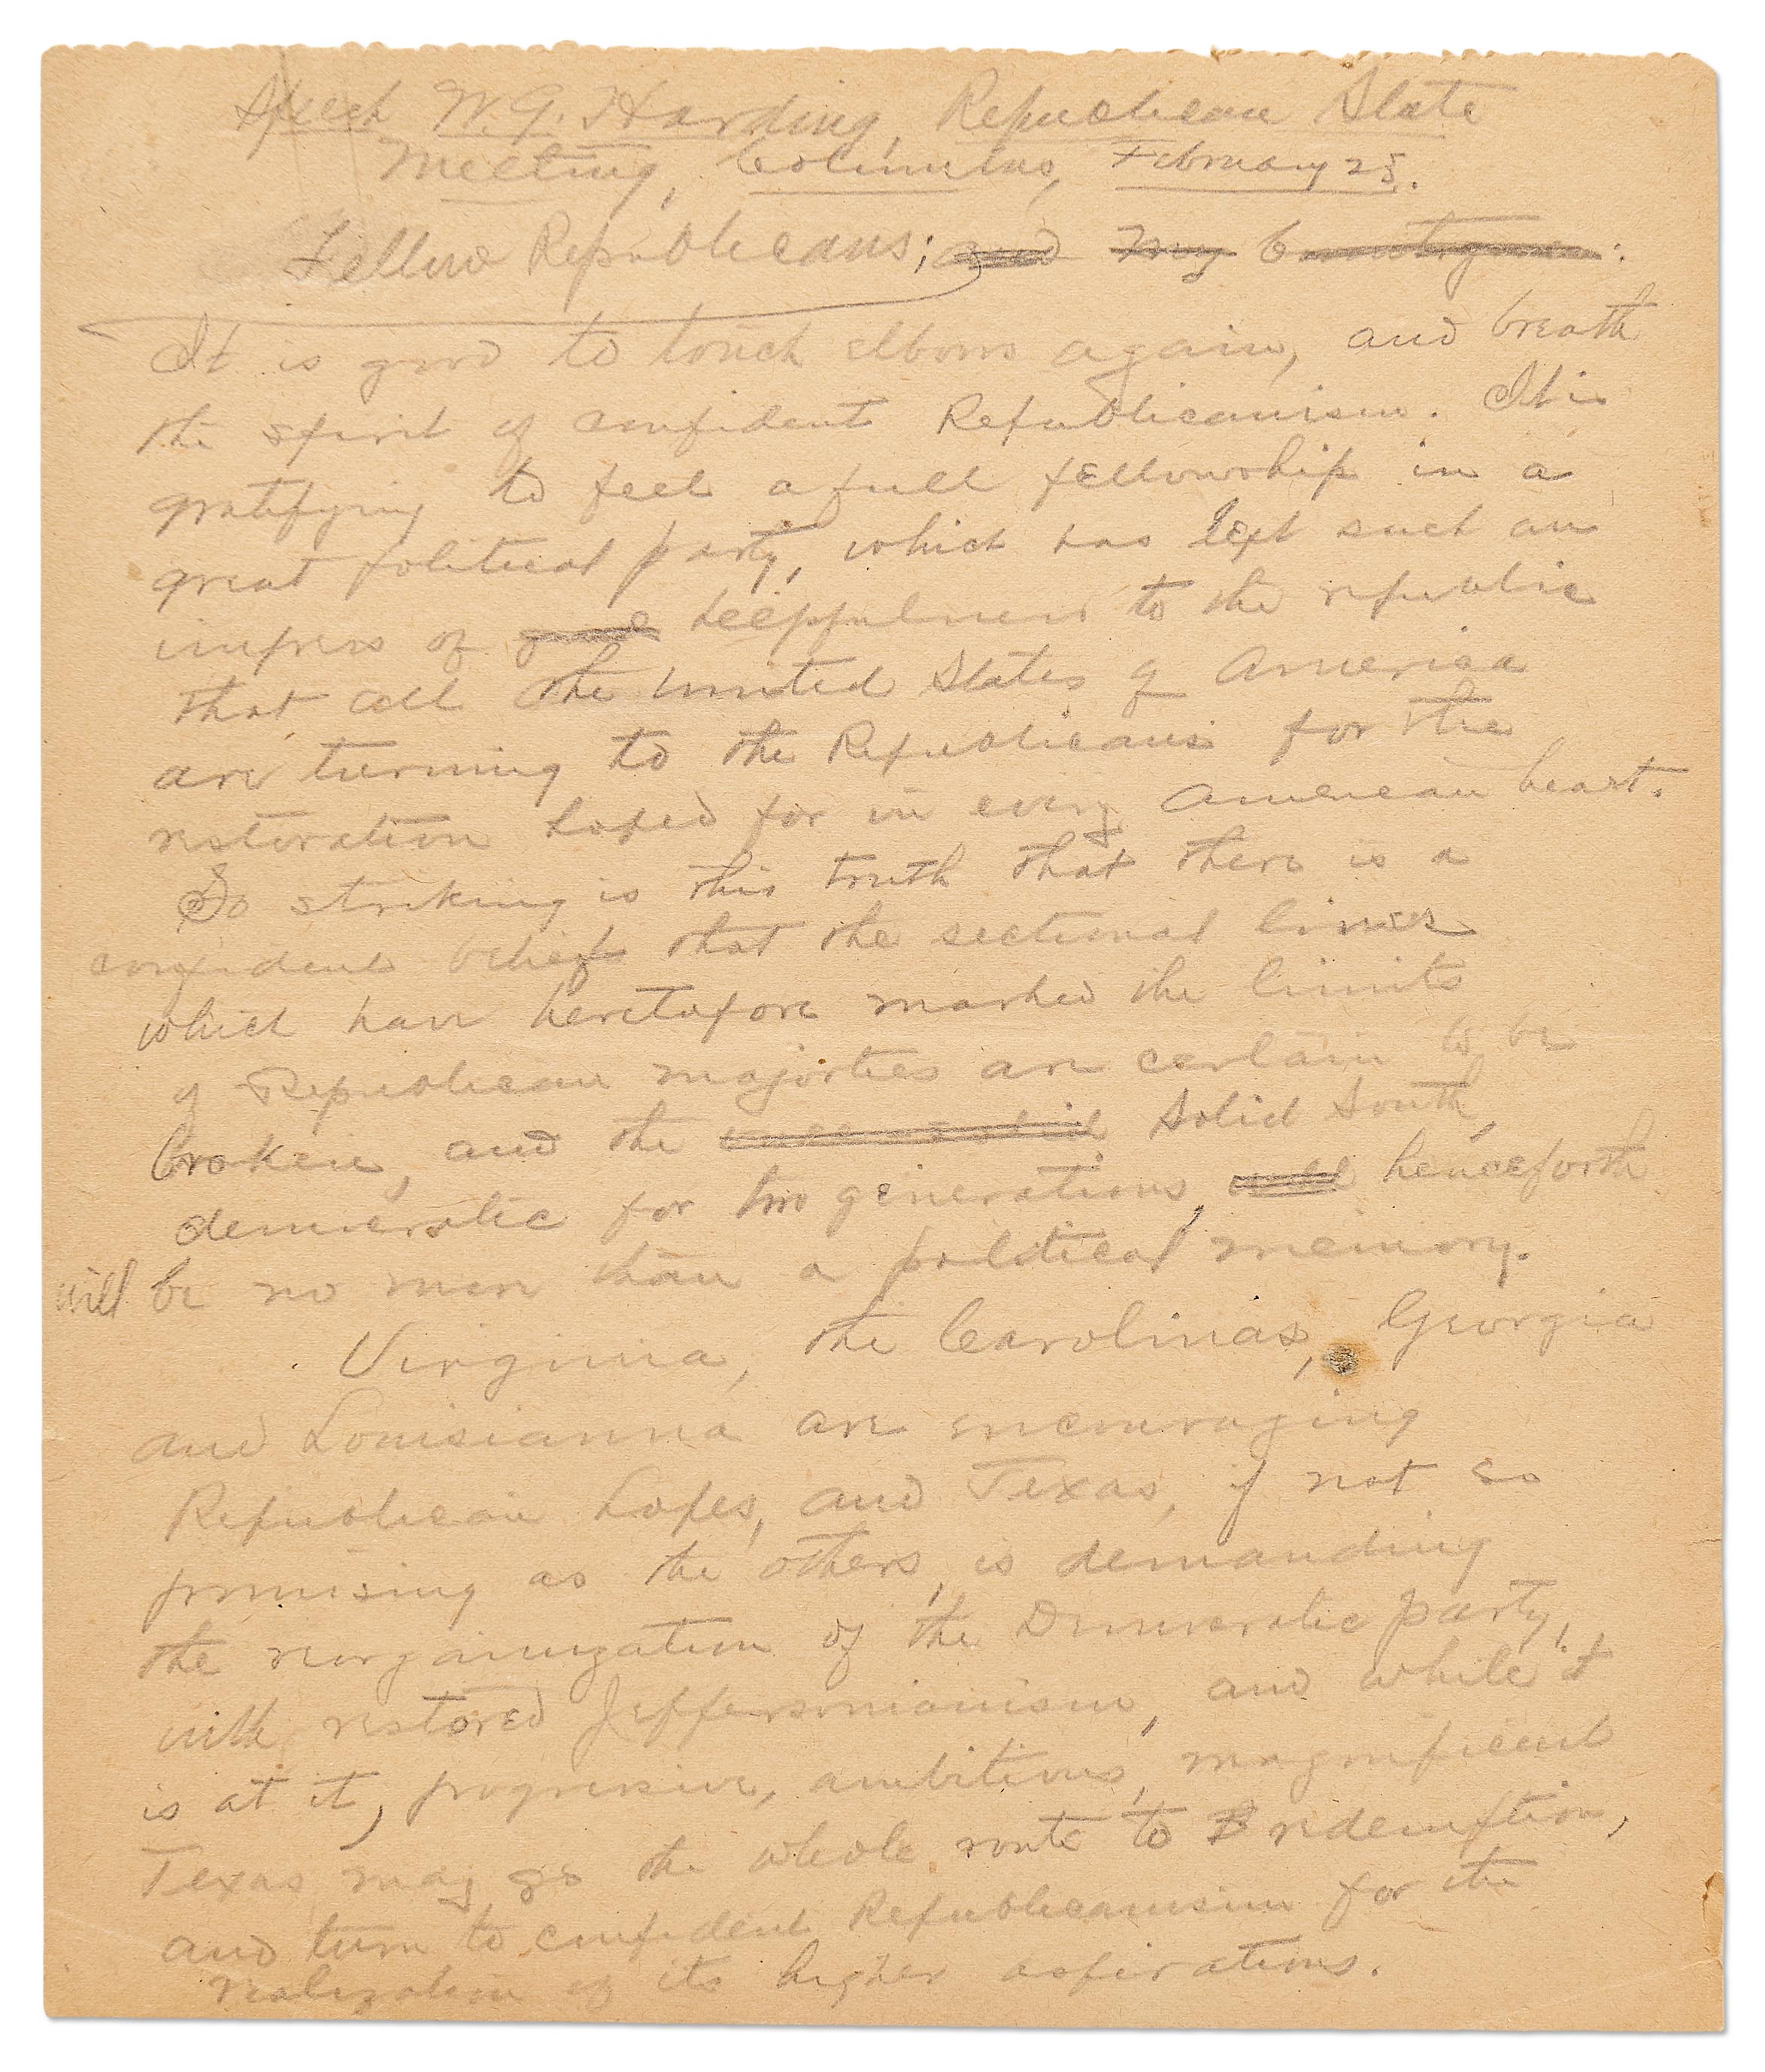 Speech W. G. Harding, Republican State
Meeting, Columbus, February 25.
Fellow Republicans; and my
It is good to touch elbows again, and breath
the spirit of confident Republicanism. It is
gratifying to feel a full fellowship in a
great political party, which has left such an
impress of helpfulness to the republic
that all the United States of America
are turning to the Republicans for the
restoration hoped for in every American heart.
So striking is this truth that there is a
confident belief that the sectional lines
which have heretofore marked the limits
of Republican majorties are certain to be
broken, and the solid South,
democratic for two generations, will henceforth
will be no more than a political memory.
Virginia, the Carolinas, Georgia
and Louisianna are encouraging
Republican hopes, and Texas, if not so
promising as the others, is demanding
the reorganization of the Democratic party,
with restored Jeffersonianism, and while it
is at it, progressive, ambitious, magnificent
Texas may go the whole route to redemption,
and turn to confident Republicanism for the
realization of its higher aspirations.